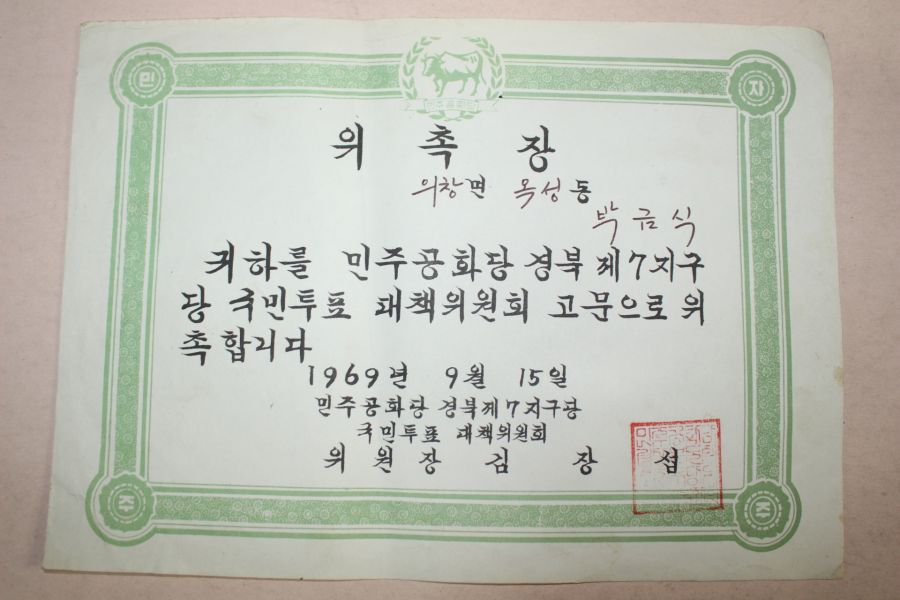 민 자
민주공화당
위촉장
의창면 옥성동
박금식
귀하를 민주공화당 경북 제7지구
당 국민투표 대책위원회 고문으로 위
촉합니다
1969년 9월 15일
민주공화당 경북제7지구당
국민투표 대책위원회
위원장 김장섭
주 주